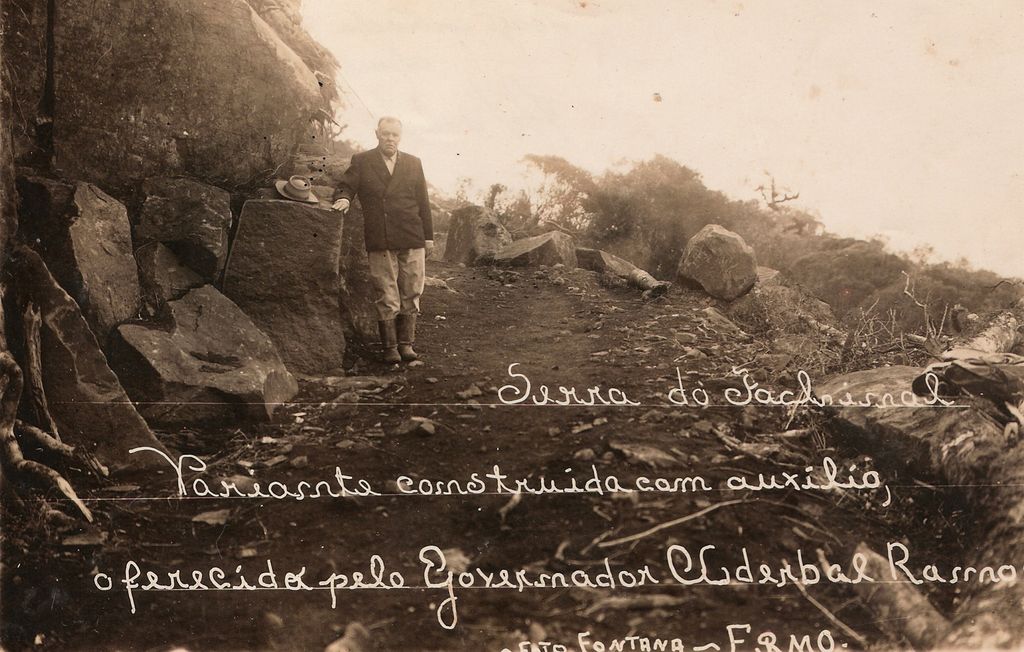 Serra do Fachinal
Variante construida com auxilio,
oferecido pelo Governador Aderbal Ramo
FOTO FONTANA - F.RMO.